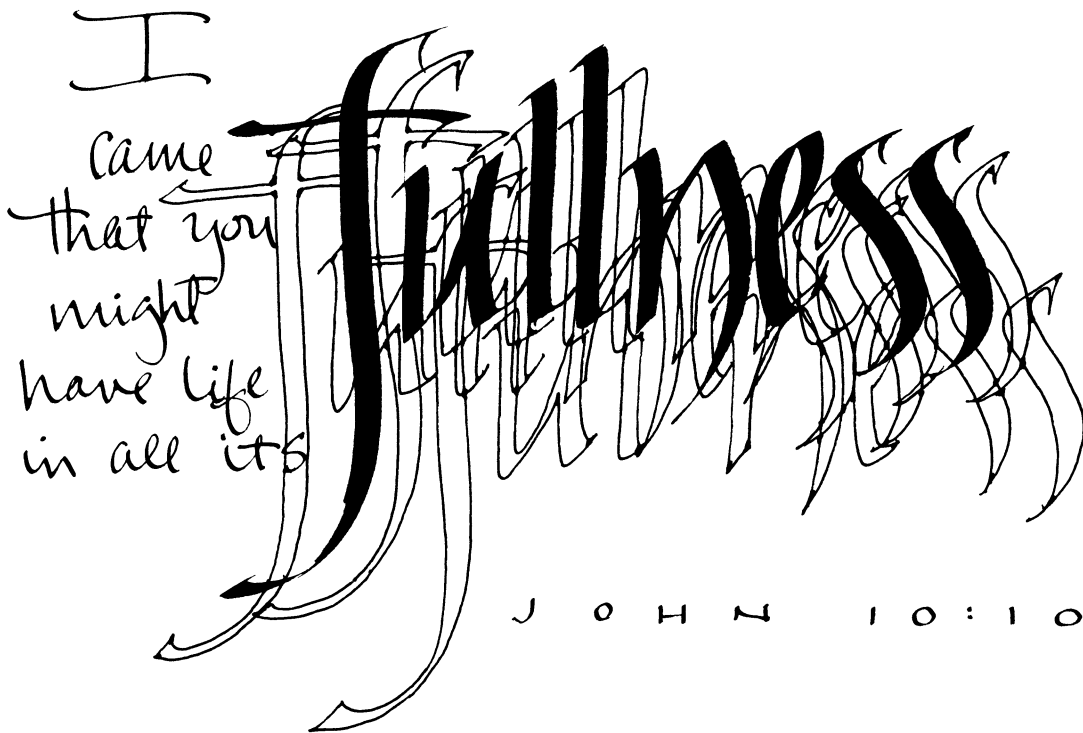 I
came
that you
might
have life
in all its
fullness
JOHN 10:10